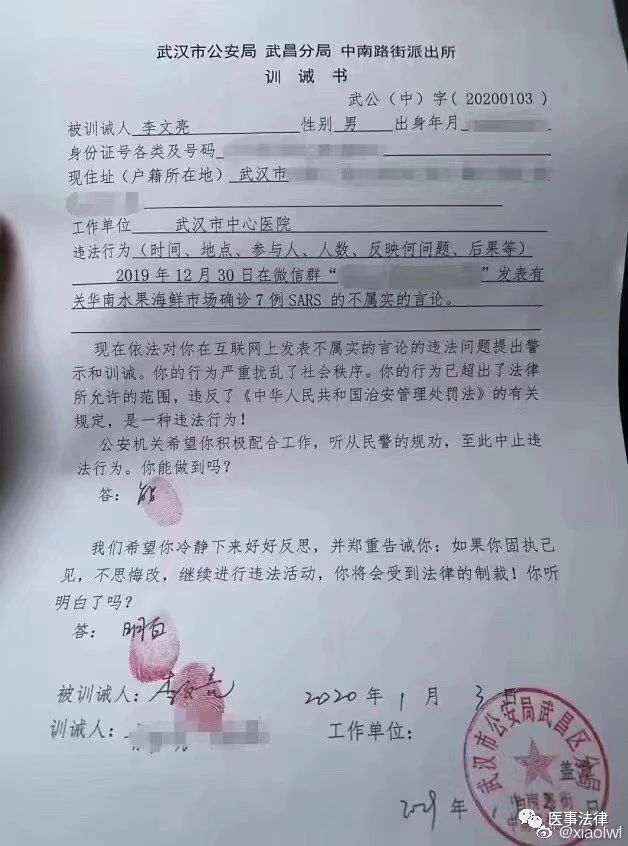 武汉市公安局 武昌分局 中南路街派出所
训 诫 书
武公（中）字（20200103）
被训诫人 李文亮 性别 男 出身年月
身份证号各类及号码
现住址（户籍所在地） 武汉市
工作单位 武汉市中心医院
违法行为（时间、地点、参与人、人数、反映何问题、后果等）
2019年12月30日在微信群“ ”发表有
关华南水果海鲜市场确诊7例SARS的不属实的言论。
现在依法对你在互联网上发表不属实的言论的违法问题提出警
示和训诫。你的行为严重扰乱了社会秩序。你的行为已超出了法律
所允许的范围，违反了《中华人民共和国治安管理处罚法》的有关
规定，是一种违法行为！
公安机关希望你积极配合工作，听从民警的规劝，至此中止违
法行为。你能做到吗？
答：能
我们希望你冷静下来好好反思，并郑重告诫你：如果你固执己
见，不思悔改，继续进行违法活动，你将会受到法律的制裁！你听
明白了吗？
答：明白
被训诫人：李文亮 2020年1月3日
训诫人： 工作单位：
武汉市公安局武昌区分局
盖章
年 日
医事法律
@xiaolwl